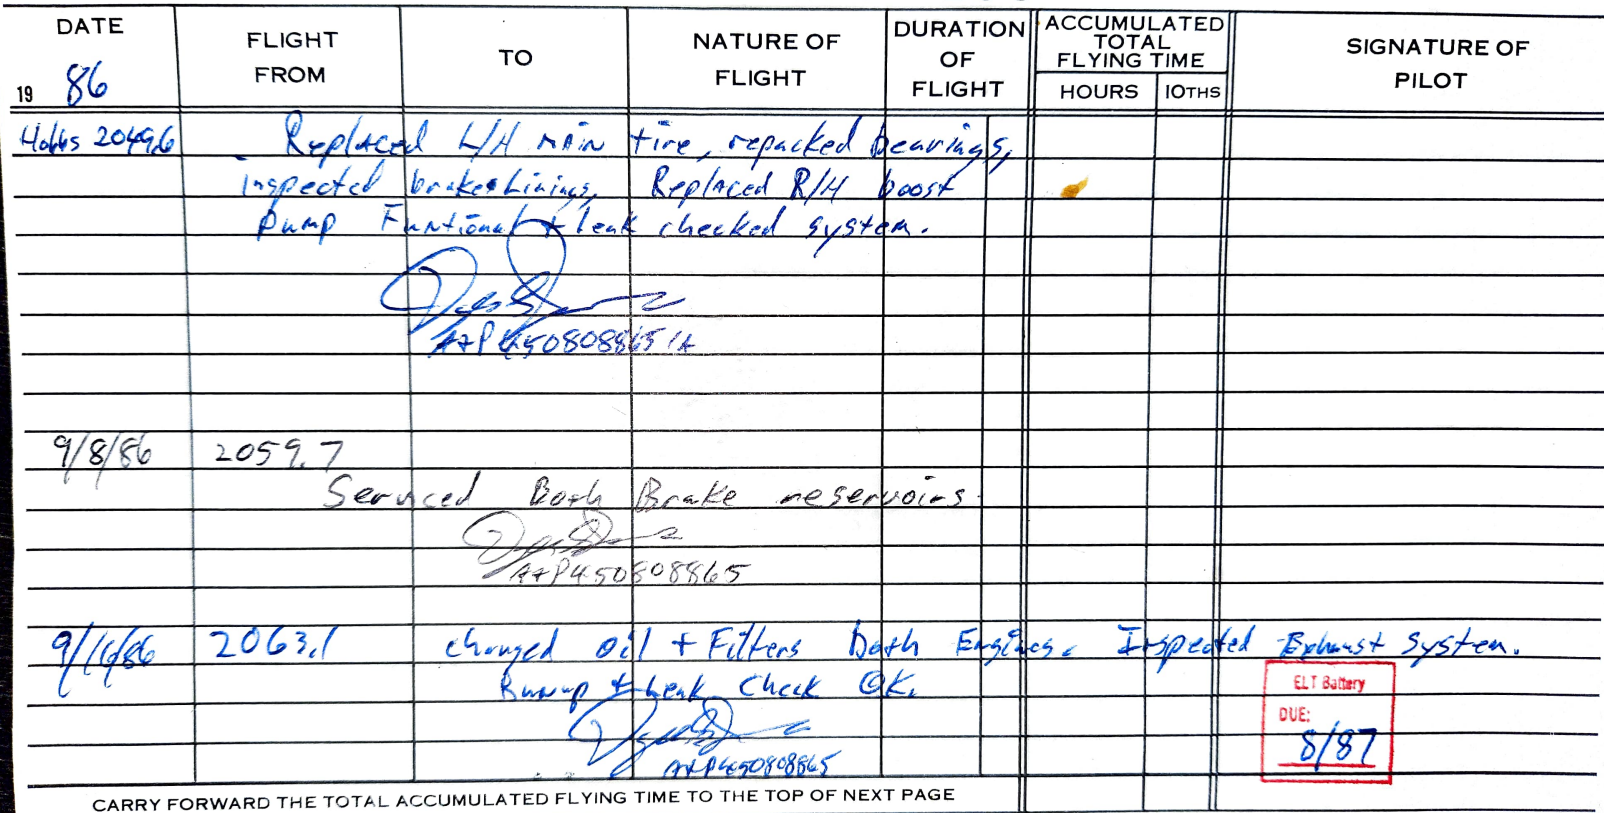 DATE FLIGHT FROM TO NATURE OF FLIGHT DURATION OF FLIGHT ACCUMULATED TOTAL FLYING TIME SIGNATURE OF PILOT
19 86 HOURS 10THS
Hobbs 2049.6 Replaced L/H main tire, repacked bearings,
Inspected brake Linings, Replaced R/H boost
pump Funtional + leak checked system.
A+P 450808865 IA
9/8/86 2059.7
Serviced Both Brake reservoirs
A+P450808865
9/16/86 2063.1 changed oil + Filters Both Engines. Inspected Exhaust System.
Runup + Leak Check OK.
ELT Battery
DUE:
8/87
A+P450808865
CARRY FORWARD THE TOTAL ACCUMULATED FLYING TIME TO THE TOP OF NEXT PAGE